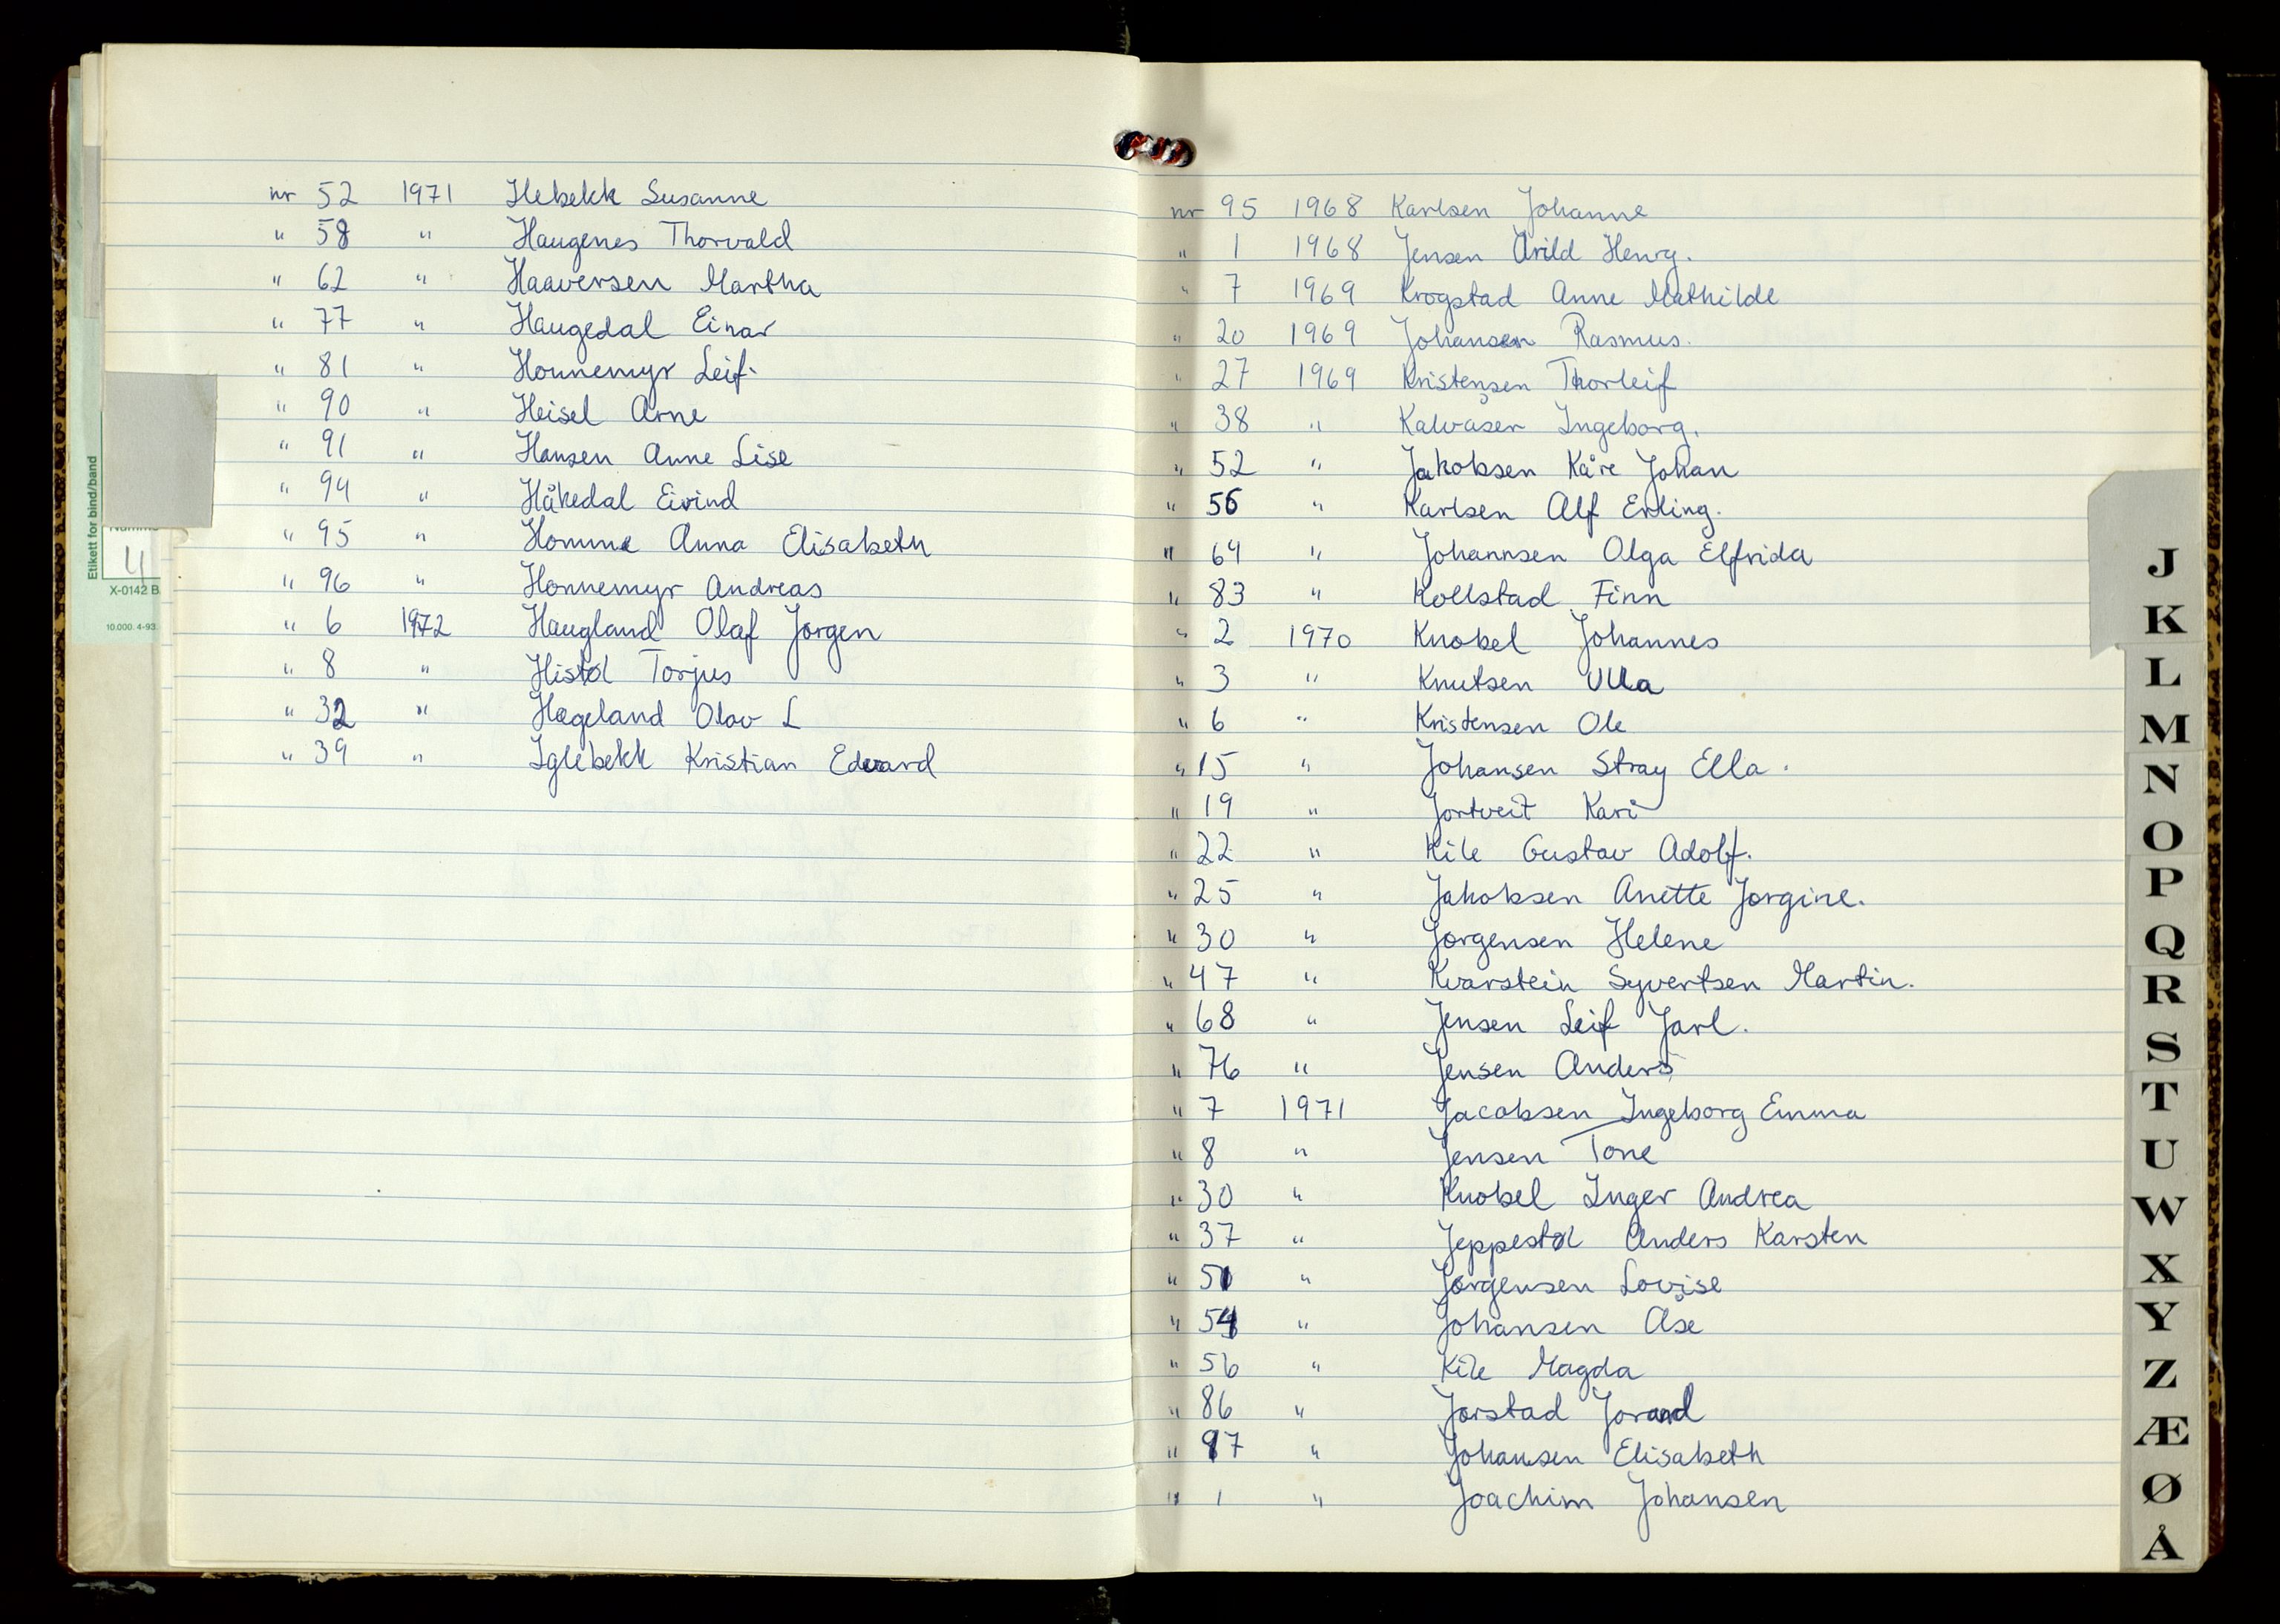 nr 52 1971 Hebekk Susanne
" 58 " Haugenes Thorvald
" 62 " Haaversen Martha
" 77 " Haugedal Einar
" 81 " Honnemyr Leif.
" 90 " Heisel Arne
" 91 " Hansen Anne Lise
" 94 " Håkedal Eivind
" 95 " Homme Anna Elisabeth
" 96 " Honnemyr Andreas
" 6 1972 Haugland Olaf Jørgen
" 8 " Histøl Torjus
" 32 " Hægeland Olav L
" 39 " Iglebekk Kristian Edvard
Etikett for bind/band
4
X-0142 B
10.000. 4-93.
nr 95 1968 Karlsen Johanne
" 1 1968 Jensen Arild Henrg.
" 7 1969 Krogstad Anne Mathilde
" 20 1969 Johansen Rasmus.
" 27 1969 Kristensen Thorleif
" 38 " Kalvåsen Ingeborg.
" 52 " Jakobsen Kåre Johan
" 56 " Karlsen Alf Erling.
" 64 " Johannsen Olga Elfrida
" 83 " Kollstad Finn
" 2 1970 Knobel Johannes
" 3 " Knutsen Ulla
" 6 " Kristensen Ole
" 15 " Johansen Stray Ella.
" 19 " Jortveit Kari
" 22 " Kile Gustav Adolf.
" 25 " Jakobsen Anette Jørgine.
" 30 " Jørgensen Helene
" 47 " Kvarstein Syvertsen Martin.
" 68 " Jensen Leif Jarl.
" 76 " Jensen Anders
" 7 1971 Jacobsen Ingeborg Emma
" 8 " Jensen Tone
" 30 " Knobel Inger Andrea
" 37 " Jeppestøl Anders Karsten
" 51 " Jørgensen Lovise
" 54 " Johansen Åse
" 56 " Kile Magda
" 86 " Jørstad Jorand
" 97 " Johansen Elisabeth
" 1 " Joachim Johansen
J
K
L
M
N
O
P
Q
R
S
T
U
W
X
Y
Z
Æ
Ø
Å